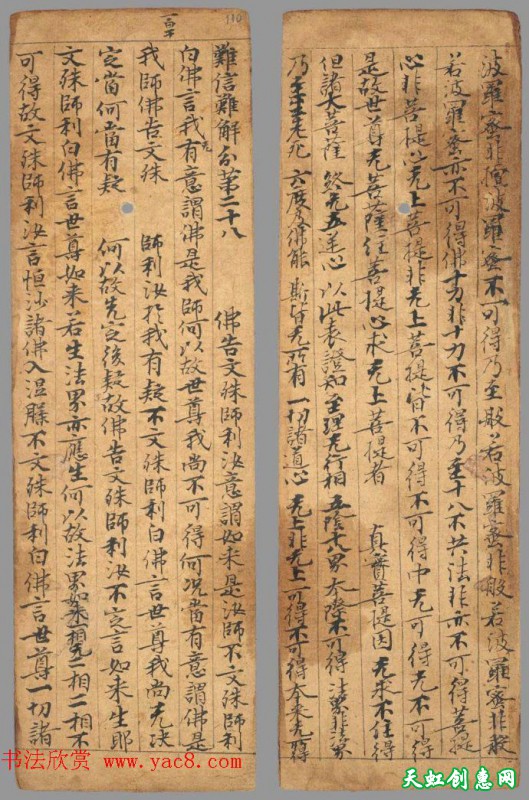 波羅蜜非檀波羅蜜不可得乃至般若波羅蜜非般
若波羅蜜亦不可得佛十力非十力不可得乃至十八不共法非亦不可得菩提
心非菩提心无上菩提非无上菩提皆不可得不可得中无可得无不可得
是故世尊无菩薩住菩提心求无上菩提者 真實菩提因 无求不住得
但諸大菩薩 終无五逆心 以此表證知 至理无行相 五陰十八界 本際不可得 法界非法界
乃至老死 六度及佛能 斯皆无所有 一切諸道心 无上非无上 可得不可得 本來无所得
一百十
110
難信難解分第二十八 佛告文殊師利汝意謂如来是汝師不文殊師利
白佛言我无有意謂佛是我師何以故世尊我尚不可得何況當有意謂佛是
我師佛告文殊 師利汝於我有疑不文殊師利白佛言世尊我尚无決
定當何當有疑 何以故先定後疑故佛告文殊師利汝不定言如来生耶
文殊師利白佛言世尊如来若生法界亦應生何以故法界如来一相无二相二相不
可得故文殊師利汝言恒沙諸佛入涅槃不文殊師利白佛言世尊一切諸
书法欣赏
www.yac8.com
天虹创惠网